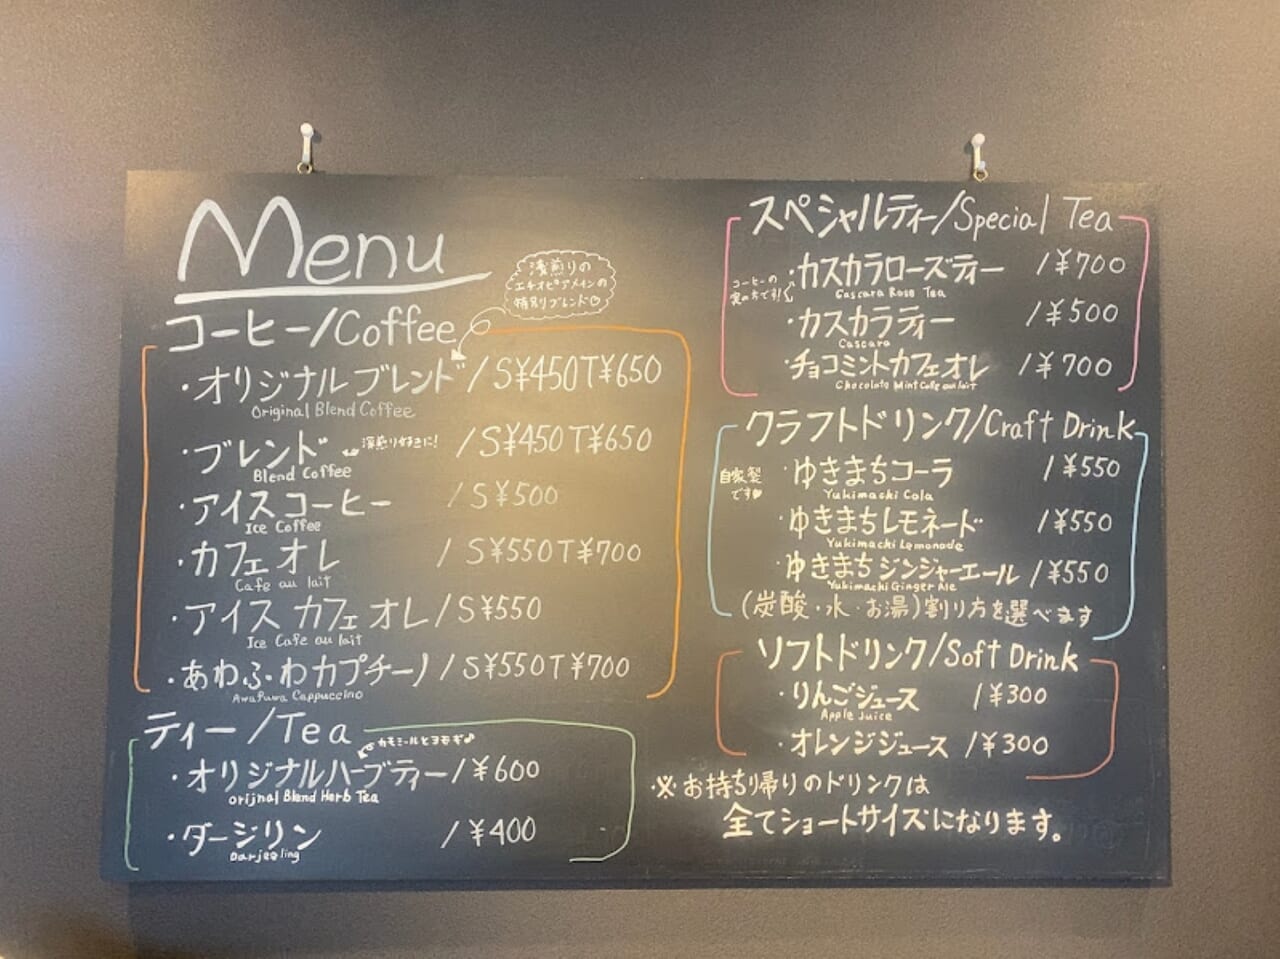 Menu
浅煎りの
エチオピアメインの
特別ブレンド♡
コーヒー/Coffee
・オリジナルブレンド/S¥450T¥650
Original Blend Coffee
・ブレンド 深煎り好きに! /S¥450T¥650
Blend Coffee
・アイスコーヒー /S¥500
Ice Coffee
・カフェオレ /S¥550T¥700
Cafe au lait
・アイスカフェオレ/S¥550
Ice Cafe au lait
・あわふわカプチーノ/S¥550T¥700
Awafuwa Cappuccino
ティー/Tea
カモミールとヨモギ♪
・オリジナルハーブティー/¥600
orijnal Blend Herb Tea
・ダージリン /¥400
Darjeeling
スペシャルティー/Special Tea
コーヒーの
実のちです!
・カスカラローズティー /¥700
Cascara Rose Tea
・カスカラティー /¥500
Cascara
・チョコミントカフェオレ /¥700
Chocolate Mint Cafe au lait
クラフトドリンク/Craft Drink
自家製
です♥
・ゆきまちコーラ /¥550
Yukimachi Cola
・ゆきまちレモネード /¥550
Yukimachi Lemonade
・ゆきまちジンジャーエール/¥550
Yukimachi Ginger Ale
(炭酸・水・お湯)割り方を選べます
ソフトドリンク/Soft Drink
・りんごジュース /¥300
Apple Juice
・オレンジジュース /¥300
・※お持ち帰りのドリンクは
全てショートサイズになります。